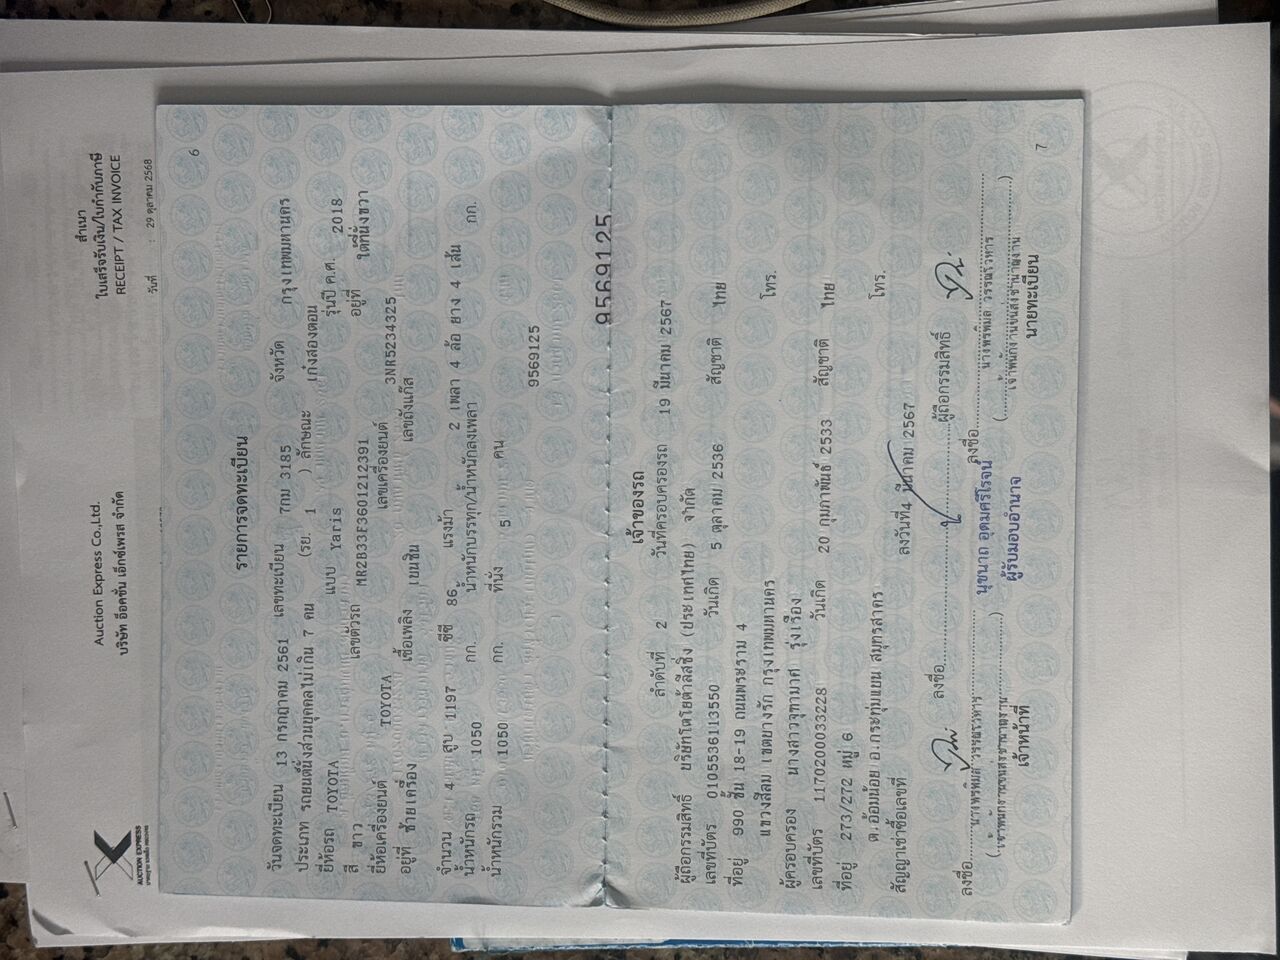 AUCTION EXPRESS
Auction Express Co.,Ltd.
บริษัท อ๊อคชั่น เอ็กซ์เพรส จำกัด
สำเนา
ใบเสร็จรับเงิน/ใบกำกับภาษี
RECEIPT / TAX INVOICE
วันที่ : 29 ตุลาคม 2568
6
รายการจดทะเบียน
วันจดทะเบียน 13 กรกฎาคม 2561 เลขทะเบียน 7กม 3185 จังหวัด กรุงเทพมหานคร
ประเภท รถยนต์นั่งส่วนบุคคลไม่เกิน 7 คน (รย. 1 ) ลักษณะ เก๋งสองตอน
ยี่ห้อรถ TOYOTA แบบ Yaris รุ่นปี ค.ศ. 2018
สี ขาว เลขตัวรถ MR2B33F3601212391 อยู่ที่ ใต้ที่นั่งขวา
ยี่ห้อเครื่องยนต์ TOYOTA เลขเครื่องยนต์ 3NR5234325
อยู่ที่ ซ้ายเครื่อง เชื้อเพลิง เบนซิน เลขถังแก๊ส
จำนวน 4 สูบ 1197 ซีซี 86 แรงม้า 2 เพลา 4 ล้อ ยาง 4 เส้น
น้ำหนักรถ 1050 กก. น้ำหนักบรรทุก/น้ำหนักลงเพลา กก.
น้ำหนักรวม 1050 กก. ที่นั่ง 5 คน
9569125
9569125
เจ้าของรถ
ลำดับที่ 2 วันที่ครอบครองรถ 19 มีนาคม 2567
ผู้ถือกรรมสิทธิ์ บริษัทโตโยต้าลีสซิ่ง (ประเทศไทย) จำกัด
เลขที่บัตร 0105536113550 วันเกิด 5 ตุลาคม 2536 สัญชาติ ไทย
ที่อยู่ 990 ชั้น 18-19 ถนนพระราม 4
แขวงสีลม เขตบางรัก กรุงเทพมหานคร โทร.
ผู้ครอบครอง นางสาวจุฑามาศ รุ่งเรือง
เลขที่บัตร 1170200033228 วันเกิด 20 กุมภาพันธ์ 2533 สัญชาติ ไทย
ที่อยู่ 273/272 หมู่ 6
ต.อ้อมน้อย อ.กระทุ่มแบน สมุทรสาคร โทร.
สัญญาเช่าซื้อเลขที่ ลงวันที่ 4 มีนาคม 2567
ลงชื่อ ผู้ถือกรรมสิทธิ์
นุชนาถ อุดมศรีโรจน์
ผู้รับมอบอำนาจ
ลงชื่อ
นางพรพิมล วรรณรัวหาร
(เจ้าพนักงานขนส่งชำนาญงาน)
เจ้าหน้าที่
ลงชื่อ
นางพรพิมล วรรณรัวหาร
(เจ้าพนักงานขนส่งชำนาญงาน)
นายทะเบียน
7